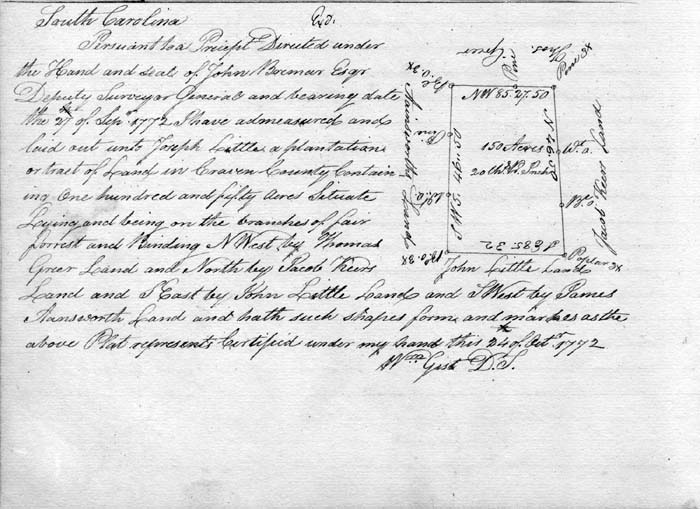 South Carolina
Exd.
Persuant to a Precept Derected under
the Hand and seal of John Bremar Esqr
Deputy Surveyor General and bearing date
the 27th of Sepr 1772 I have admeasured and
laid out unto Joseph Little a plantation
or tract of Land in Craven County Contain
ing One hundred and fifty Acres Situate
Lying and being on the branches of fair
forrest and Binding N West by Thomas
Greer Land and North by Jacob Keers
Land and S East by John Little Land and S West by James
Aansworth Land and hath such shapes form and markes as the
above Plat represents Certified under my hand this 24th of Octr 1772
Wm Gist D.S.
Thos. Greer
Pine
Pine 3X
NW 85. 27.50
N
Jacob Keers Land
Wt. O.
Bt. O.
150 Acres
20 Ch. Pr. Inch
S W 5. 46.50
Ainsworth Land
S E 85. 32
Poplar 3X
John Little Land